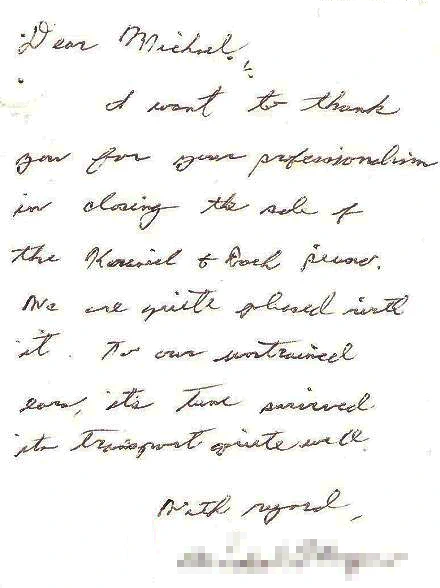 Dear Michael,
I want to thank
you for your professionalism
in closing the sale of
the Krannich & Bach piano.
We are quite pleased with
it. To our untrained
ears, its tune survived
its transport quite well.
With regard,